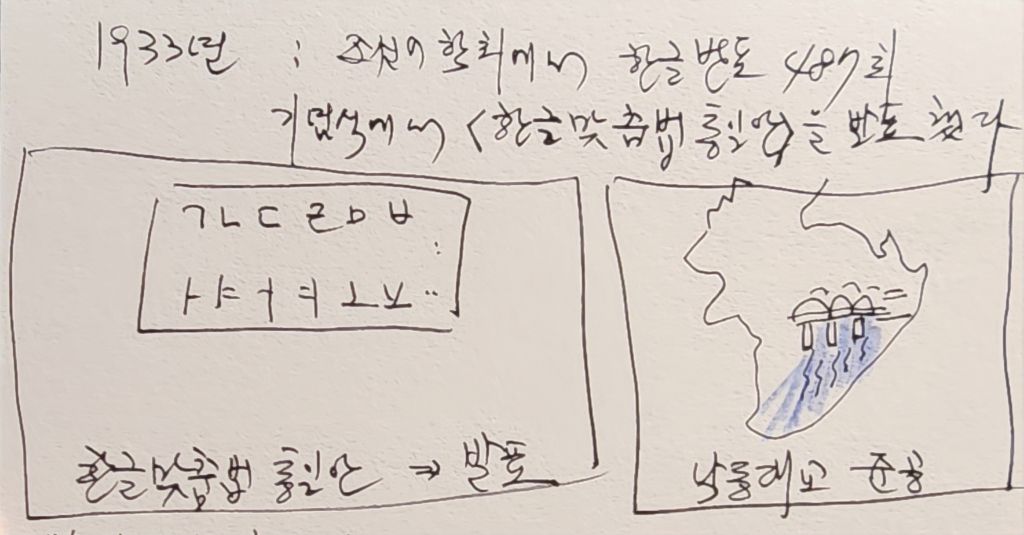 1933년 : 조선어학회에서 한글반포 487회
기념식에서 <한글맞춤법통일안>을 반포했다
ㄱㄴㄷㄹㅁㅂ..
ㅏㅑㅓㅕㅗㅛ..
한글맞춤법 통일안 → 발표
낙동대교 준공